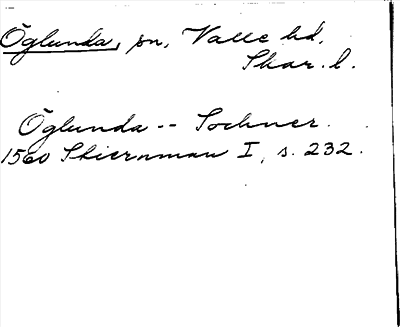 Öglunda, sn, Valle hd.
Skar. l.
Öglunda -- Sochner.
1560 Skiernman I, s. 232.